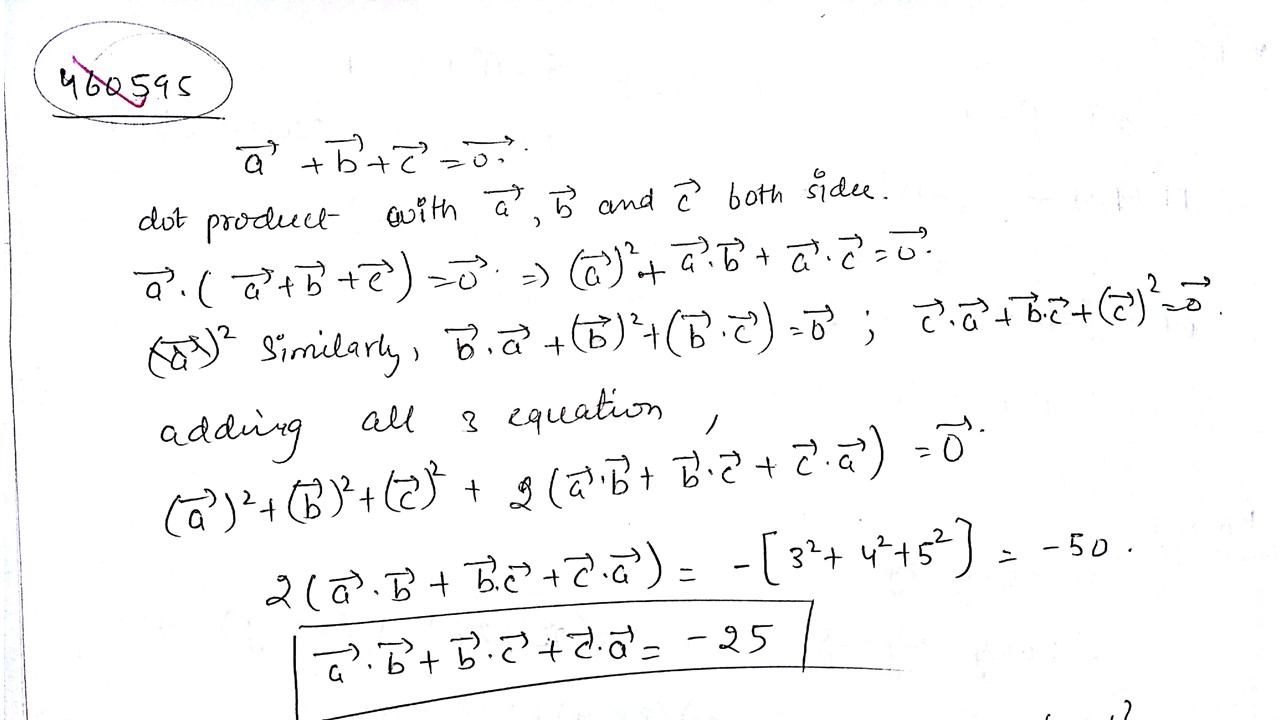 460595
a⃗ + b⃗ + c⃗ = 0⃗.
dot product with a⃗, b⃗ and c⃗ both sidee.
a⃗.( a⃗ + b⃗ + c⃗ ) = 0⃗. => (a⃗)² + a⃗.b⃗ + a⃗.c⃗ = 0⃗.
(a⃗)² Similarly, b⃗.a⃗ + (b⃗)² + (b⃗.c⃗) = 0⃗ ; c⃗.a⃗ + b⃗.c⃗ + (c⃗)² = 0⃗.
adding all 3 equation,
(a⃗)² + (b⃗)² + (c⃗)² + 2 (a⃗.b⃗ + b⃗.c⃗ + c⃗.a⃗) = 0⃗.
2 (a⃗.b⃗ + b⃗.c⃗ + c⃗.a⃗) = -[3² + 4² + 5²] = -50.
a⃗.b⃗ + b⃗.c⃗ + c⃗.a⃗ = -25